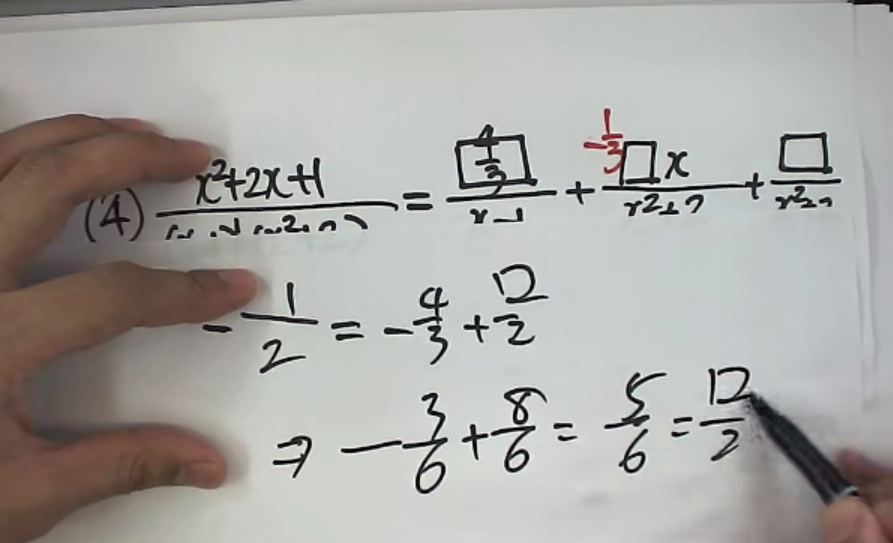 (4) x²+2x+1 = 4/3 / x-1 + -1/3 □x / x²+2 + □ / x²+2
-1/2 = -4/3 + □/2
⇒ -3/6 + 8/6 = 5/6 = □/2